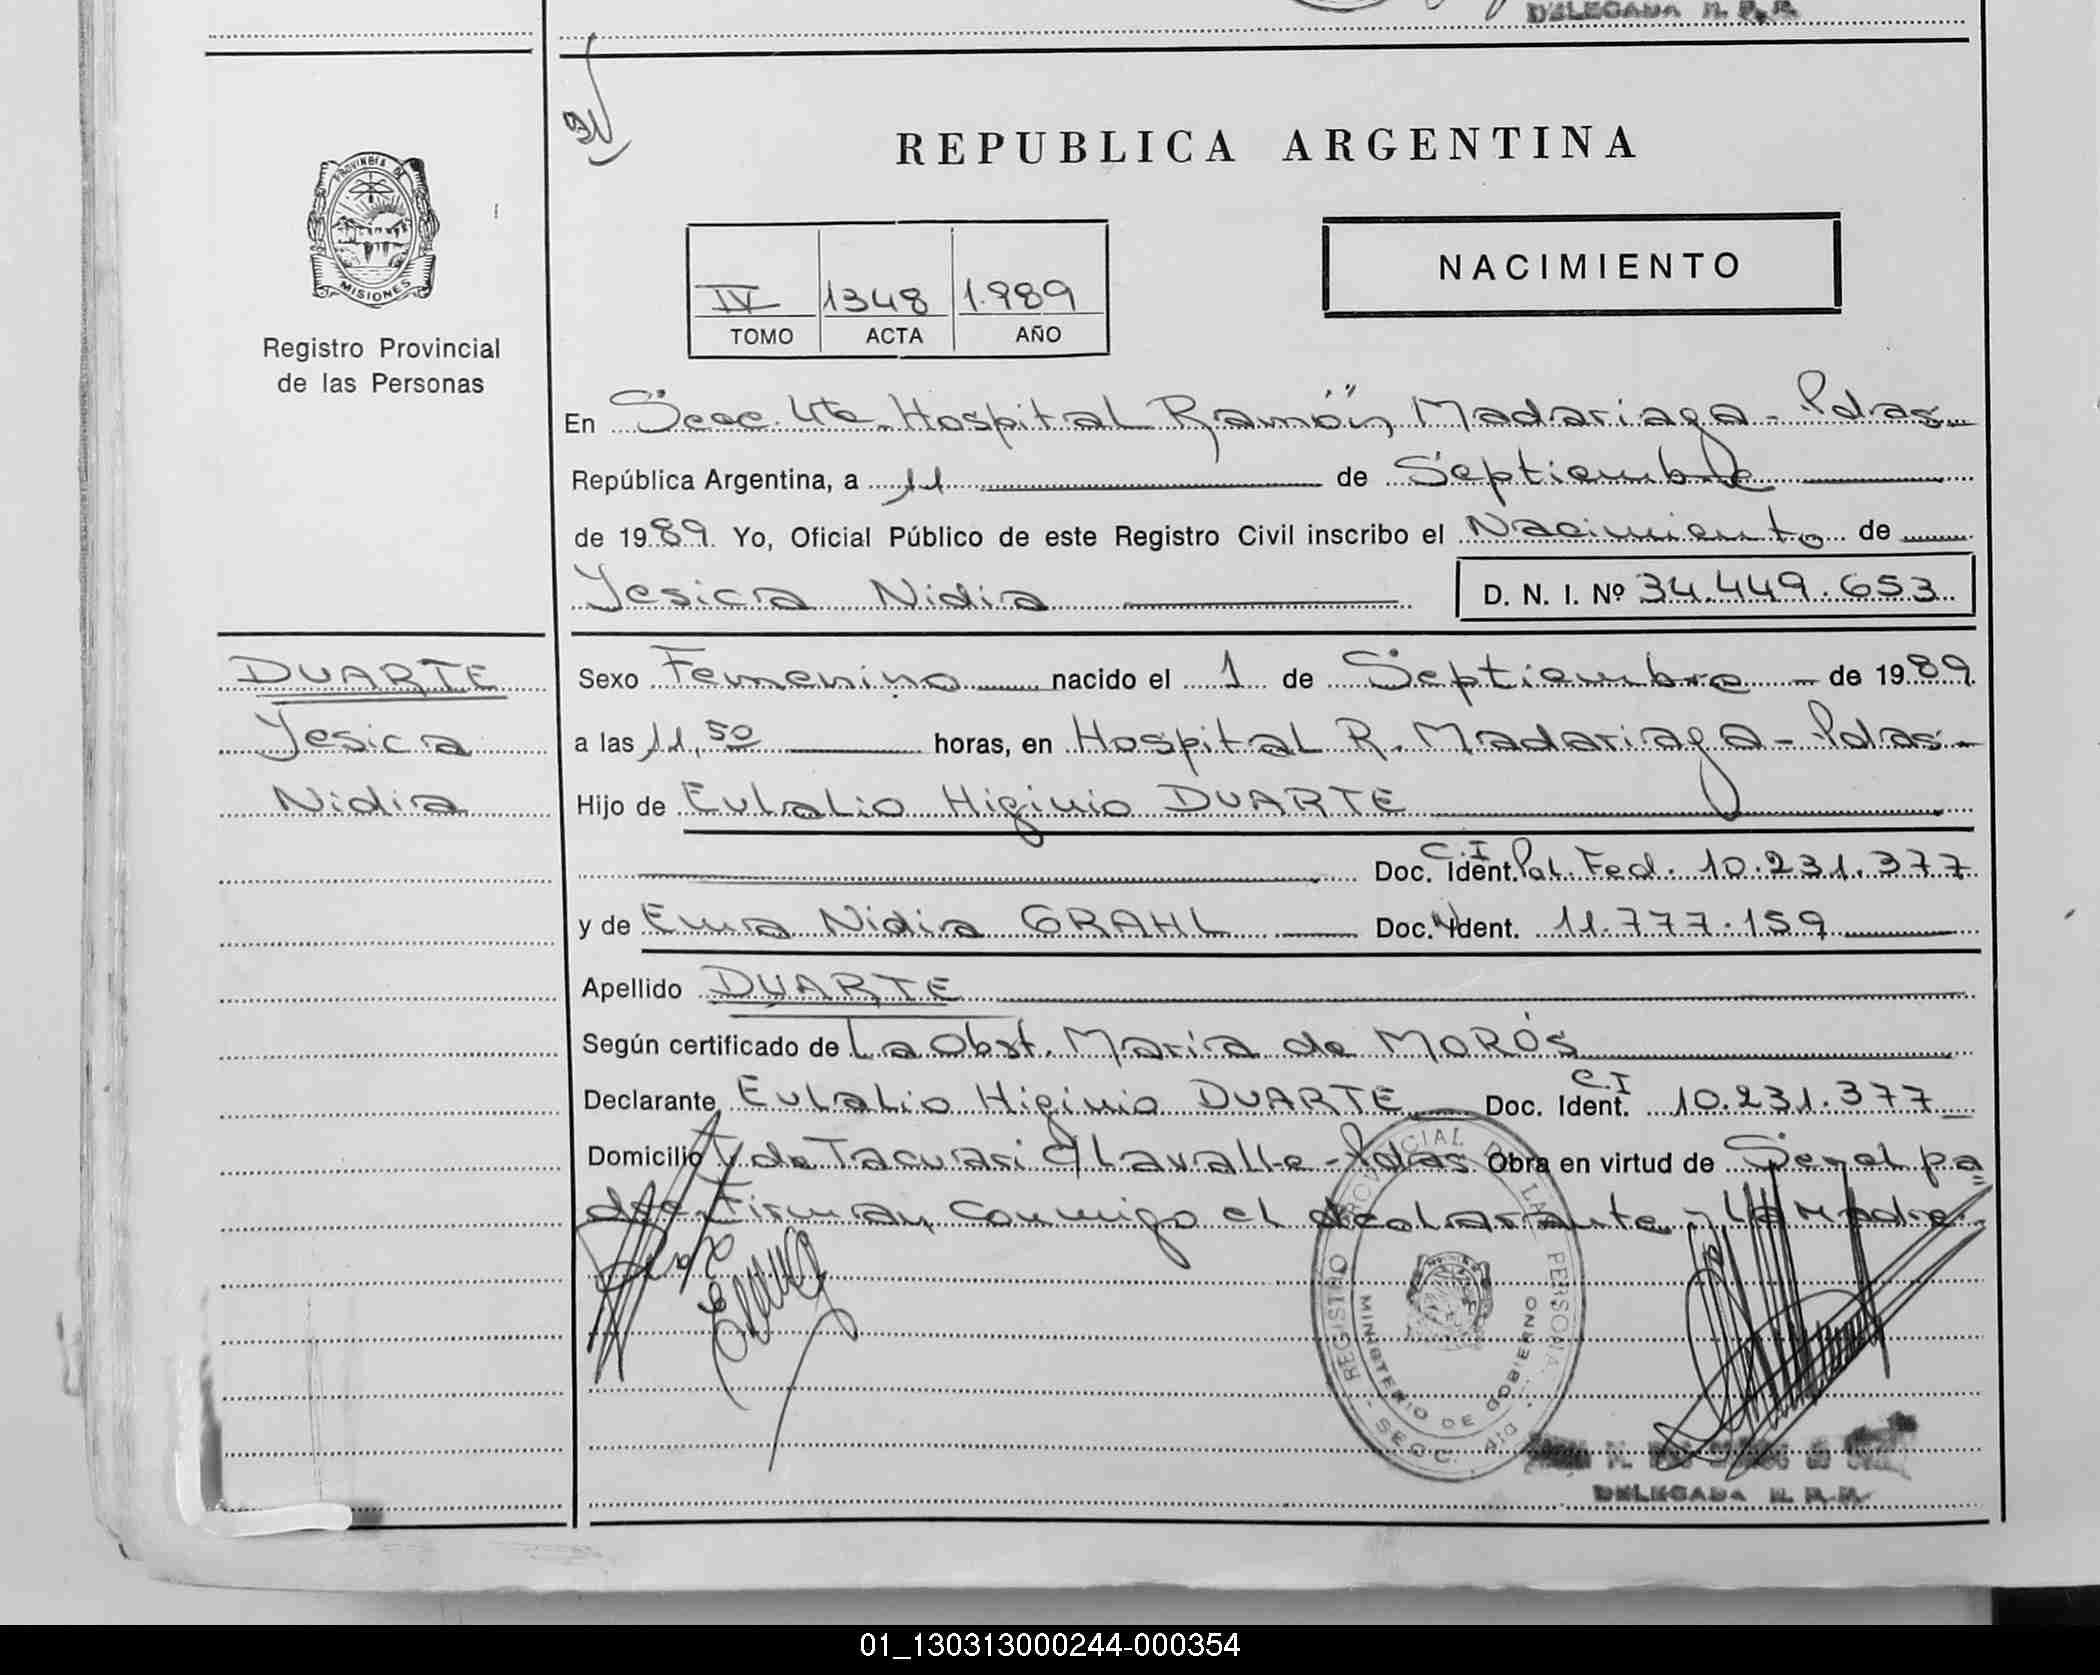 DELEGADA R. P. P.
PROVINCIA DE
MISIONES
Registro Provincial
de las Personas
REPUBLICA ARGENTINA
NACIMIENTO
IV 1348 1.989
TOMO ACTA AÑO
En Secc. 4ta. Hospital "Ramón Madariaga - Pdas.
República Argentina, a 11 de Septiembre
de 1989. Yo, Oficial Público de este Registro Civil inscribo el Nacimiento de
Yesica Nidia D. N. I. Nº 34.449.653
DUARTE
Yesica
Nidia
Sexo Femenino nacido el 1 de Septiembre de 1989.
a las 11,50 horas, en Hospital R. Madariaga - Pdas.
Hijo de Eulalio Higinio DUARTE
Doc. Ident. C.I Pol. Fed. 10.231.377
y de Ema Nidia GRAHL Doc. Ident. 11.777.159
Apellido DUARTE
Según certificado de La Obst. María de MORÓS
Declarante Eulalio Higinio DUARTE Doc. Ident. C.I 10.231.377
Domicilio de Tacuari y Lavalle - Pdas. Obra en virtud de Ser el pa
dre. Firman conmigo el declarante y la Madre.
REGISTRO PROVINCIAL DE LAS PERSONAS
MINISTERIO DE GOBIERNO
SECC. DIR.
DELEGADA R. P. P.
01_130313000244-000354